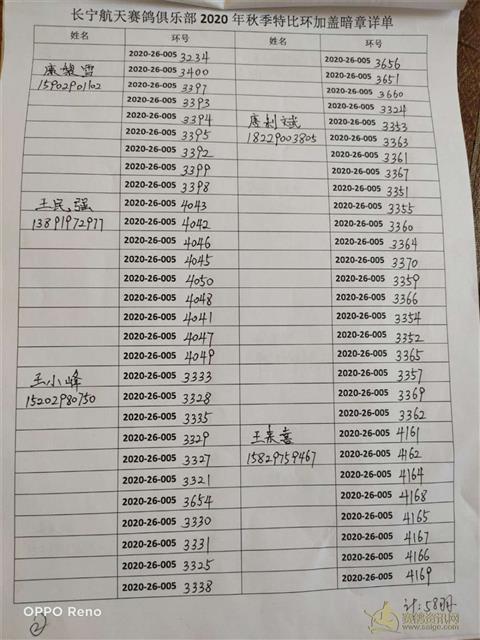 长宁航天赛鸽俱乐部 2020 年秋季特比环加盖暗章详单
姓名 环号 姓名 环号
2020-26-005 3234 2020-26-005 3656
2020-26-005 3400 2020-26-005 3651
15902901102 2020-26-005 3397 2020-26-005 3660
2020-26-005 3393 2020-26-005 3324
2020-26-005 3394 利斌 2020-26-005 3353
2020-26-005 3395 18229003805 2020-26-005 3363
2020-26-005 3392 2020-26-005 3361
2020-26-005 3399 2020-26-005 3367
2020-26-005 3398 2020-26-005 3351
王民强 2020-26-005 4043 2020-26-005 3355
13891972977 2020-26-005 4042 2020-26-005 3360
2020-26-005 4046 2020-26-005 3364
2020-26-005 4045 2020-26-005 3370
2020-26-005 4050 2020-26-005 3359
2020-26-005 4048 2020-26-005 3366
2020-26-005 4041 2020-26-005 3354
2020-26-005 4047 2020-26-005 3352
2020-26-005 4049 2020-26-005 3365
王小峰 2020-26-005 3333 2020-26-005 3357
15202980750 2020-26-005 3328 2020-26-005 3369
2020-26-005 3335 2020-26-005 3362
2020-26-005 3329 王 喜 2020-26-005 4161
2020-26-005 3327 15829759467 2020-26-005 4162
2020-26-005 3321 2020-26-005 4164
2020-26-005 3654 2020-26-005 4168
2020-26-005 3330 2020-26-005 4165
2020-26-005 3331 2020-26-005 4167
2020-26-005 3325 2020-26-005 4166
2020-26-005 3338 2020-26-005 4169
计:58羽
OPPO Reno
②
赛鸽资讯网
www.saige.com